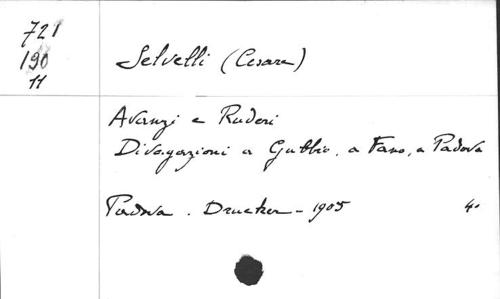 721
190
11
Selvelli (Cesare)
Avanzi e Ruderi
Divagazioni a Gubbio, a Fano, a Padova
Padova. Drucker - 1905 4°